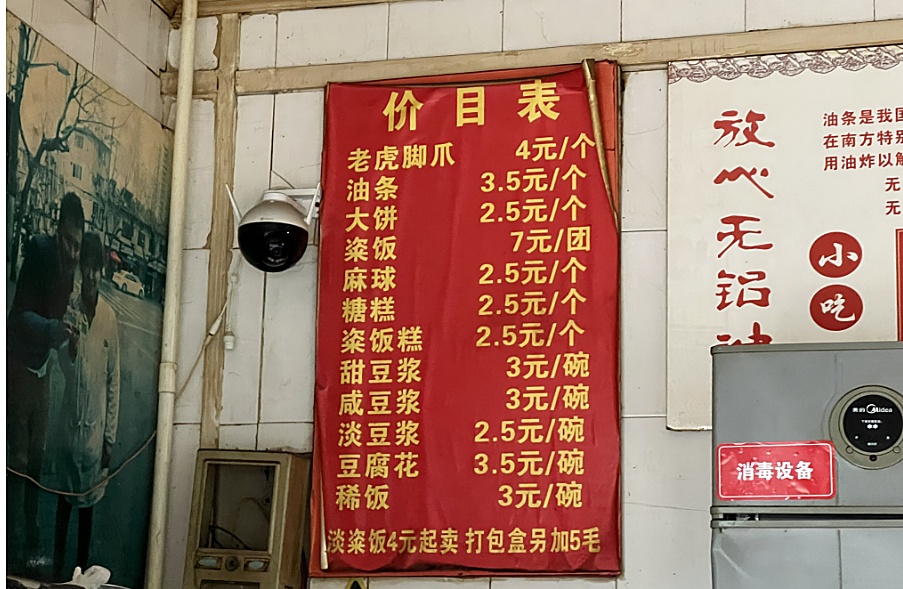 价目表
老虎脚爪 4元/个
油条 3.5元/个
大饼 2.5元/个
粢饭 7元/团
麻球 2.5元/个
糖糕 2.5元/个
粢饭糕 2.5元/个
甜豆浆 3元/碗
咸豆浆 3元/碗
淡豆浆 2.5元/碗
豆腐花 3.5元/碗
稀饭 3元/碗
淡粢饭4元起卖 打包盒另加5毛
放心无铝油
油条是我国
在南方特别
用油炸以解
无
无
小吃
美的 Midea
消毒设备